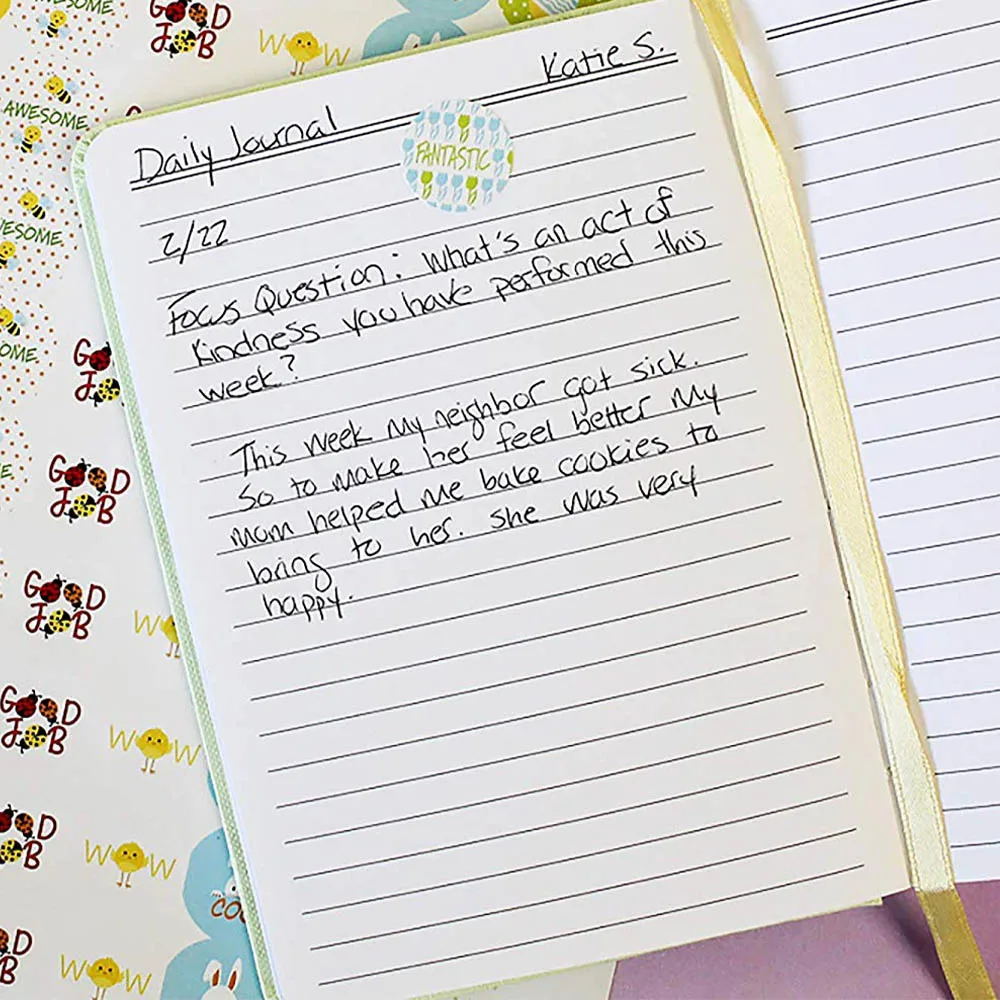 Daily Journal
Katie S.
FANTASTIC
2/22
Focus Question: What's an act of
kindness you have performed this
week?
This week my neighbor got sick.
So to make her feel better my
mom helped me bake cookies to
bring to her. She was very
happy.
AWESOME
GOOD
JOB
WOW
AWESOME
AWESOME
GOOD
JOB
GOOD
JOB
GOOD
JOB
WOW
GOOD
JOB
WOW
GOOD
JOB
WOW
GOOD
JOB
WOW